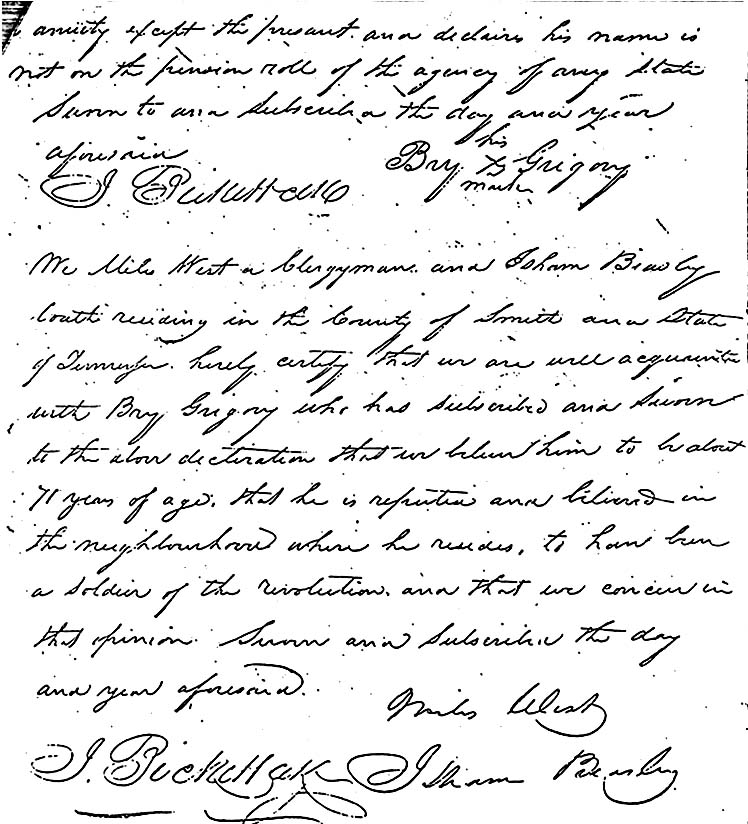 anuity except the present and declairs his name is
not on the pension roll of the agency of any State
Sworn to and Subscribed the day and year
aforesaid
his
Bry B Grigory
mark
J Pickett
We Miles West a Clergyman and Isham Beasley
both residing in the County of Smith and State
of Tennessee hereby certify that we are well acquainted
with Bry Grigory who has subscribed and Sworn
to the above declaration that we believe him to be about
71 years of age, that he is reputed and believed in
the neighbourhood where he resides, to have been
a soldier of the revolution, and that we concur in
that opinion. Sworn and Subscribed the day
and year aforesaid.
Miles West
J. Pickett Isham Beasley